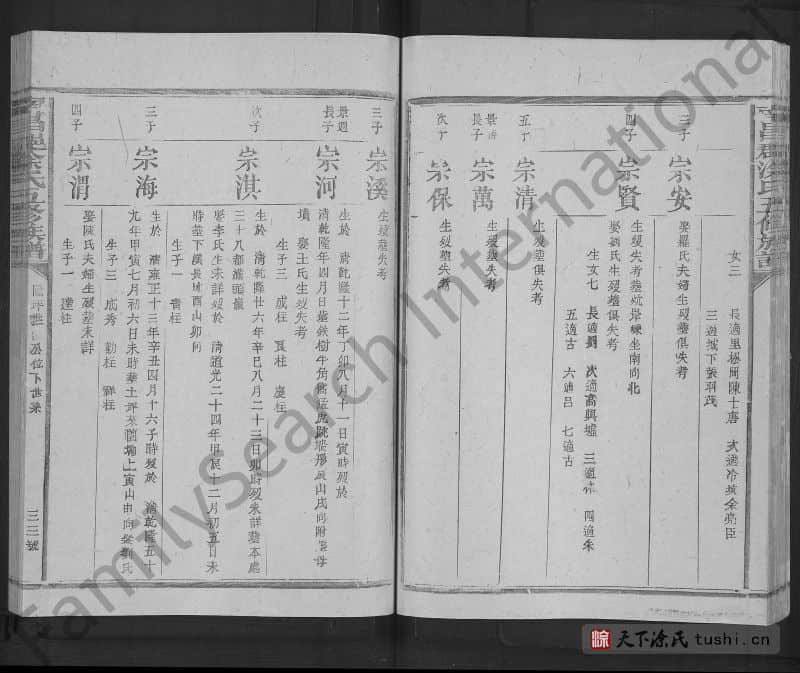 女三
長適里極周陳士唐 次適冷坡余亮臣
三適城下張羽茂
三子
宗安
娶羅氏夫婦生歿塟俱失考
四子
宗賢
生歿失考塟 坐南向北
娶劉氏生歿塟俱失考
生女七 長適 次適高興墟 三適 四適朱
五適古 六適呂 七適古
五子
宗清
生歿塟俱失考
長子
宗萬
生歿塟失考
次子
宗保
生歿塟失考
三子
宗溪
生歿塟失考
景週
長子
宗河
生於 清乾隆十二年丁卯八月十一日寅時歿於
清乾隆年四月日塟鉄樹牛角 虎跳墻形艮山 向附 母
墳 娶王氏生歿失考
生子三 成柱 柱 慶柱
次子
宗淇
生於 清乾隆廿六年辛巳八月二十三日卯時歿未詳塟本處
三十八都滿 嶺
娶李氏生未詳歿於 清道光二十四年甲辰十二月初五日未
時塟下溪長坡酉山卯向
生子一 柱
三子
宗海
生於 清雍正十三年辛丑四月十六子時歿於 清乾隆五十
九年甲寅七月初六日未時塟土坪 上寅山申向娶劉氏
生子三 成秀 勤柱 祥柱
四子
宗渭
娶陳氏夫婦生歿塟未詳
生子一 遵柱
公位下世系
三三號
FamilySearch International
天下涂氏 tushi.cn